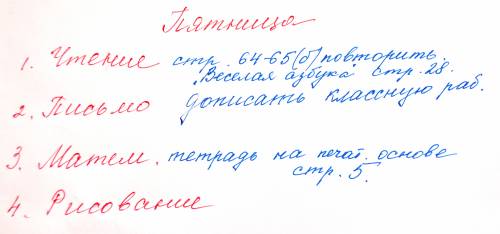 Пятница
1. Чтение стр. 64-65(б) повторить.
"Веселая азбука" стр. 28.
2. Письмо дописать классную раб.
3. Матем. тетрадь на печат. основе
стр. 5.
4. Рисование